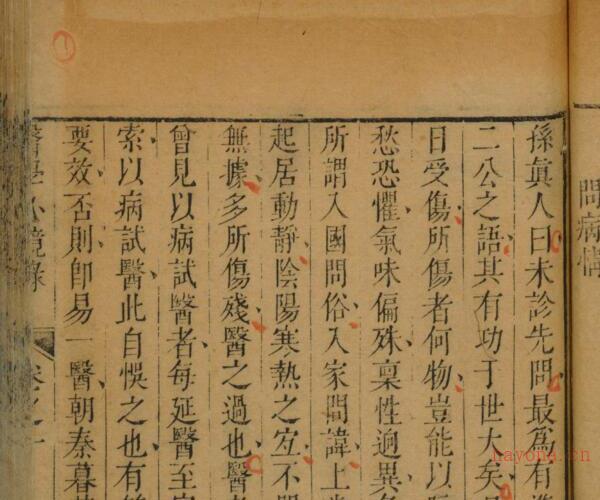 問病情
孫眞人曰未診先問最爲有
二公之語其有功于世大矣
日受傷所傷者何物豈能以
愁恐懼氣味偏殊稟性逈異
所謂入國問俗入家問諱上
起居動靜陰陽寒熱之宐不
無據多所傷殘醫之過也醫
曾見以病試醫者每延醫至
索以病試醫此自悞之也有
要效否則卽易一醫朝秦暮
醫學心鏡錄 卷之一
nayona.cn